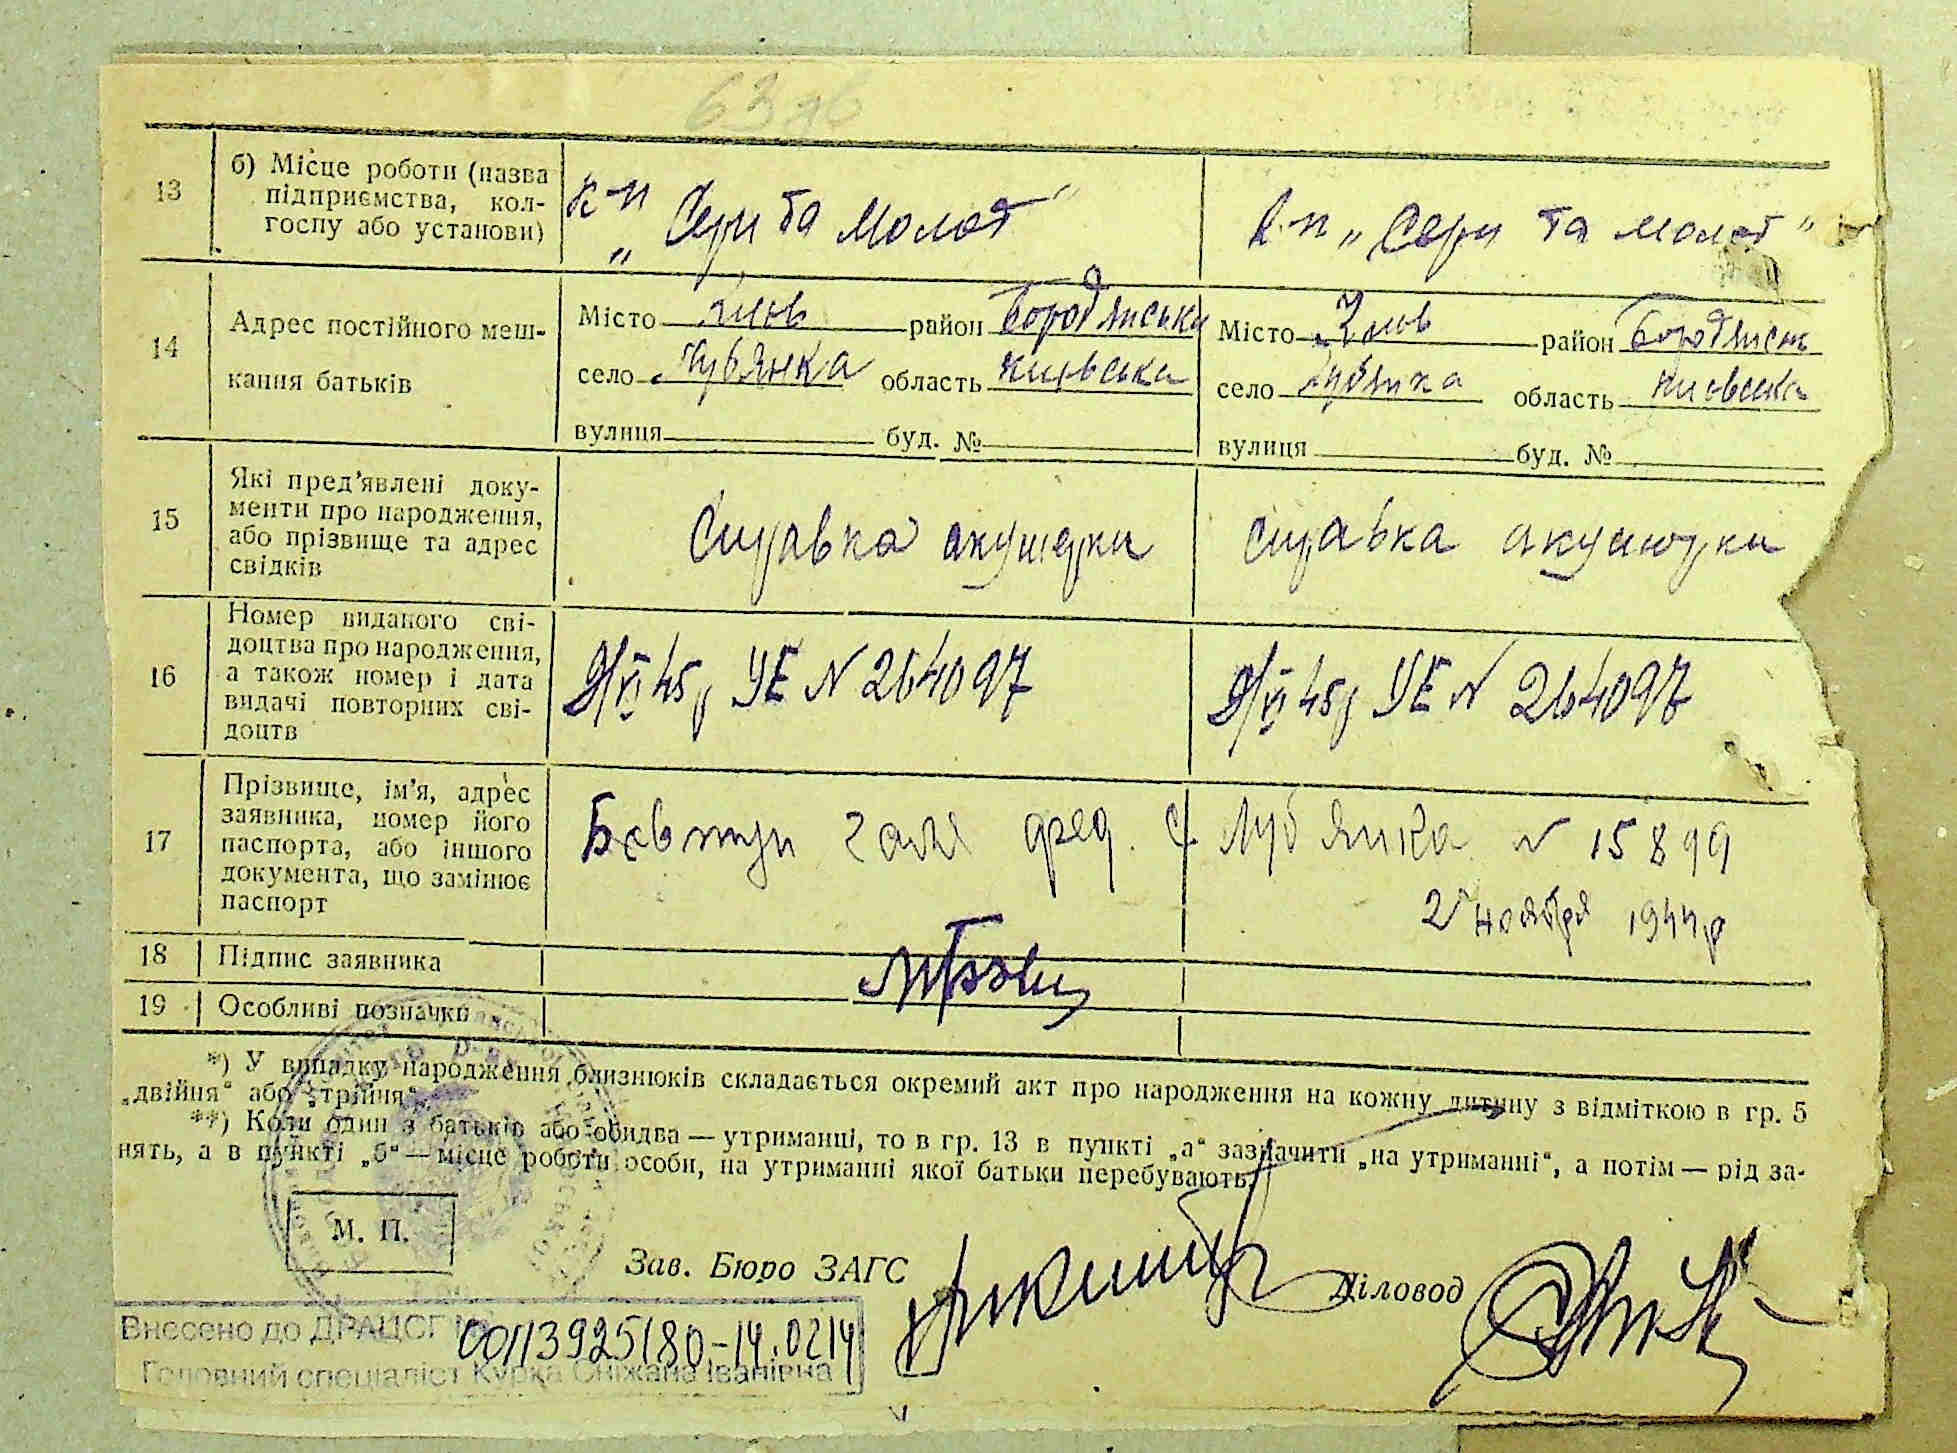 13
б) Місце роботи (назва
підприємства, кол-
госпу або установи)
к-п
„ Серп та молот "
к-п „ Серп та молот "
14
Адрес постійного меш-
кання батьків
Місто район Бородянськи
село Лубянка область київська
вулиця буд. №
Місто район Бородянськ
село Лубянка область київська
вулиця буд. №
15
Які пред'явлені доку-
менти про народження,
або прізвище та адрес
свідків
Справка акушерки
Справка акушерки
16
Номер виданого сві-
доцтва про народження,
а також номер і дата
видачі повторних сві-
доцтв
9/VI 45р УЕ N 264097
9/VI 45р УЕ N 264097
17
Прізвище, ім'я, адрес
заявника, номер його
паспорта, або іншого
документа, що замінює
паспорт
галя фед. с. Лубянка N 15899
2 ноября 1944р
18 Підпис заявника
19 Особливі позначки
*) У випадку народження близнюків складається окремий акт про народження на кожну дитину з відміткою в гр. 5
„двійня“ або „трійня“.
**) Коли один з батьків або обидва — утриманці, то в гр. 13 в пункті „а“ зазначити „на утриманні“, а потім — рід за-
нять, а в пункті „б“ — місце роботи особи, на утриманні якої батьки перебувають.
М. П.
Зав. Бюро ЗАГС
Діловод
Внесено до ДРАЦСГ № 00113925180-14.0214
Головний спеціаліст Курка Сніжана Іванівна